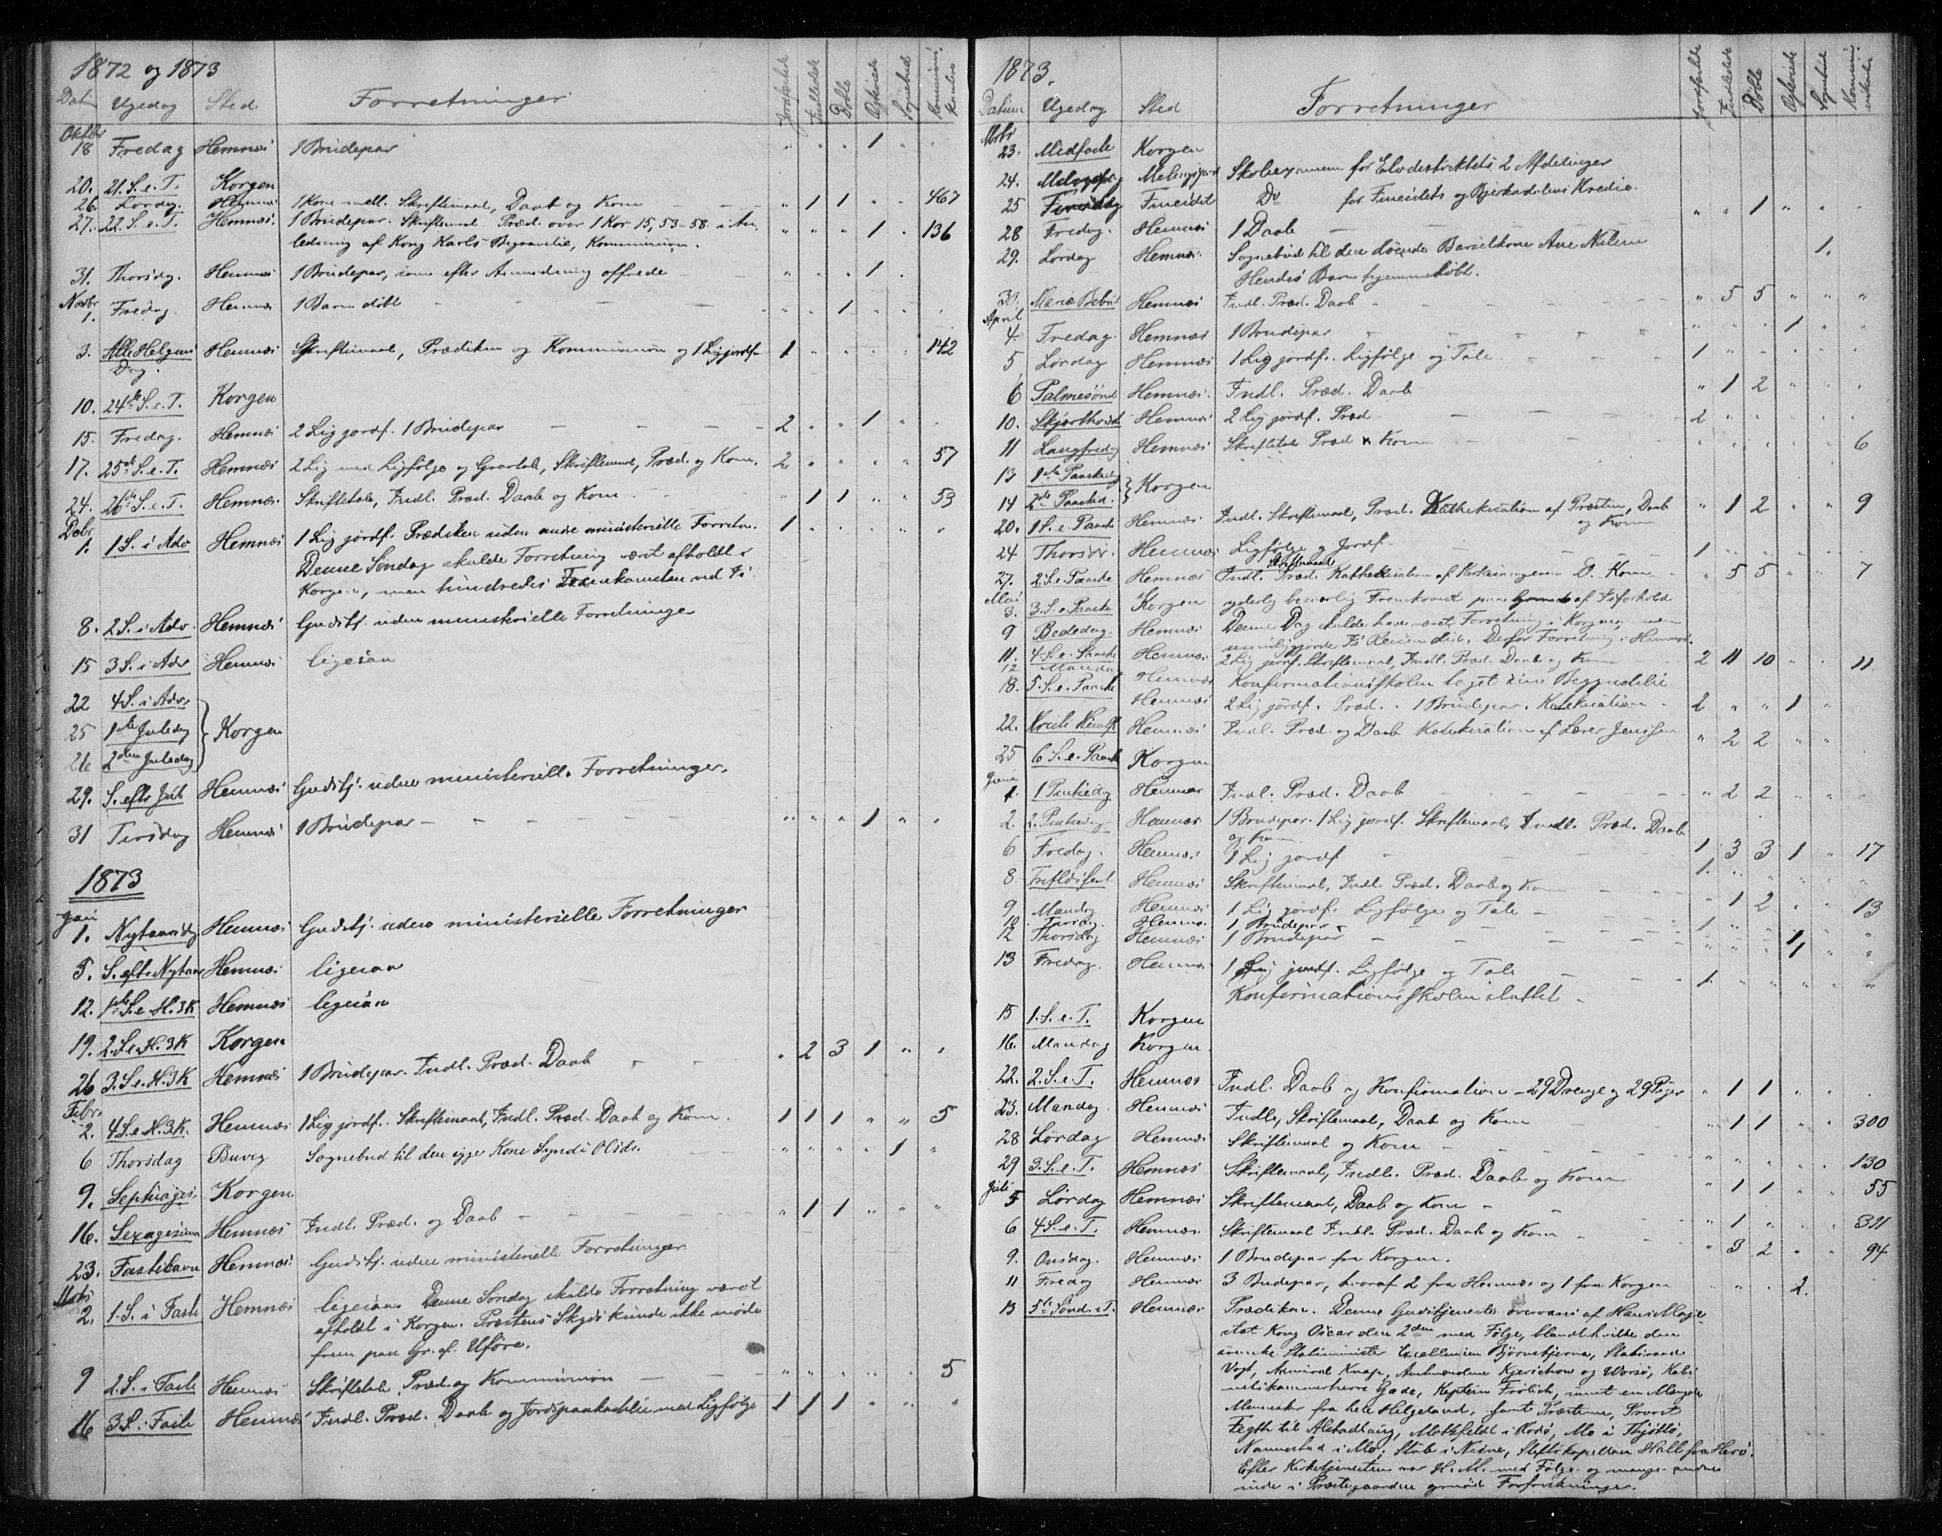 1872 og 1873
Datum Ugedag Sted. Forretninger Jordfæstede Indledede Døbte Egteviede Sognebud Kommunikanter
Oktbr
18 Fredag Hemnæs 1 Brudepar " " " 1 " "
20. 21. S. e. T. Korgen
26. Lørdag. Hemnæs 1 Kone indl. Skriftemaal, Daab og Kom — — 1 1 " " 467
27. 22. S. e. T. Hemnæs. 1 Brudepar. Skriftemaal Præd. over 1 Kor 15,53-58 i An- " " " 1 " 136
ledning af Kong Karls Begravelse, Kommunion.
31. Thorsdag. Hemnæs 1 Brudepar, som efter Anmodning offrede — " " " 1 "
Novbr
1. Fredag Hemnæs 1 Barn døbt — — — " " 1 " " "
3. Alle Helgens Hemnæs Skriftemaal, Prædiken og Kommunion og 1 Lig jordf. 1 " " " " 142
Dag.
10. 24de S. e. T. Korgen
15. Fredag. Hemnæs 2 Lig jordf. 1 Brudepar — — — 2 " " 1 " "
17. 25de S. e. T. Hemnæs 2 Lig med Ligfølge og Gravtale, Skriftemaal, Præd. og Kom. 2 " " " " 57
24. 26de S. e. T. Hemnæs. Skriftetale, Indl. Præd. Daab og Kom — " 1 1 " " 53
Debr
1. 1 S. i Adv Hemnæs 1 Lig jordf. Prædiken uden andre ministerielle Forretn. 1 " " " " "
Denne Søndag skulde Forretning været afholdt i
Korgen, men hindredes Fremkomsten ved Is.
8. 2 S. i Adv. Hemnæs Gudstj. uden ministerielle Forretninger
15 3 S. i Adv Hemnæs ligesaa
22 4 S. i Adv.
25 1ste Juledag } Korgen
26 2den Juledag
29. S. eftr Jul Hemnæs Gudstj. uden ministerielle Forretninger.
31 Tirsdag Hemnæs 1 Brudepar — — — " " " 1 " "
1873
Jan
1. Nytaarsdg Hemnæs Gudstj. uden ministerielle Forretninger
5. S. eftr. Nytaar Hemnæs ligesaa
12. 1ste S. e. H. 3 K Hemnæs ligesaa
19. 2. S. e. H. 3 K Korgen
26 3. S. e. H. 3 K Hemnæs 1 Brudepar. Indl. Præd. Daab — — " 2 3 1 " "
Febr.
2. 4 S. e. H. 3 K. Hemnæs 1 Lig jordf. Skriftemaal, Indl. Præd. Daab og Kom. 1 1 1 " " 5
6 Thorsdag Buvig Sognebud til den syge Kone Synde Olsdr. — 1 "
9. Septuages. Korgen
16. Sexagesima Hemnæs Indl. Præd. og Daab — — — " 1 1 " " "
23. Fastelavn Hemnæs Gudstj. uden ministerielle Forretninger
Mars
2. 1. S. i Faste Hemnæs ligesaa Denne Søndag skulde Forretning været
afholdt i Korgen. Præstens Skyds kunde ikke møde
frem paa Gr. af Uføre.
9 2. S. i Faste Hemnæs Skriftetale, Præd. og Kommunion — — " " " " " 5
16 3 S. i Faste Hemnæs Indl. Præd. Daab og Jordspaakastelse med Ligfølge 1 1 1 " " "
1873.
Datum Ugedag Sted Forretninger Jordfæstede Indledede Døbte Egteviede Sognebud Kommunikanter
Mars
23. Midfaste Korgen
24. Mandag Skoleexamen for Elvedistriktets 2 Afdelinger
25 Tirsdag Fineidet Do for Fineidets og Bjerkadalens Kredse.
28 Fredag. Hemnæs 1 Daab — — " " 1 " " "
29. Lørdag Hemnæs. Sognebud til den døende Barselkone Ane 1.
Hendes Barn hjemmedøbt.
30. Mariæ Bebud Hemnæs Indl. Præd. Daab — — " 5 5 " " "
April
4. Fredag. Hemnæs 1 Brudepar — — " " " 1 " "
5 Lørdag Hemnæs 1 Lig jordf. Ligfølge og Tale — 1 " " " " "
6 Palmesønd Hemnæs. Indl. Præd. Daab " 1 2 " " "
10. Skjærthorsd Hemnæs 2 Lig jordf. Præd — — 2 " " " "
11 Langfredg Hemnæs Skriftetale Præd & Kom — — 6
13 1ste Paaskedg
14 2den Paasked. } Korgen
20. 1 S. e. Paaske Hemnæs. Indl. Skriftemaal, Præd. Kathekisation af Præsten, Daab " 1 2 " " 9
og Kom
24 Thorsdg. Hemnæs Ligfølge og Jordf. — 1 " " " "
Skriftemaal
27. 2. S. e. Paaske Hemnæs Indl. Præd. Kathekisation af Kirkesangeren D. Kom — " 5 5 " " 7
Mai
3. 3. S. e. Paaske Korgen yderlig besværlig Fremkomst paa Grund af Isforhold
9 Bededag. Hemnæs Denne Dag skulde have været Forretning i Korgen, men
umuliggjorde Is Reisen did. Derfor Forretning i Hemnæs.
11. 4. S. e. Paaske Hemnæs 2 Lig jordf. Skriftemaal, Indl. Præd. Daab og Kom — 2 11 10 " " 11
12 Mandag Hemnæs Konfirmationsskolen taget sin Begyndelse
18. 5. S. e. Paaske Hemnæs 2 Lig jordf. Præd. 1 Brudepar. Katekisation — 2 " " 1 "
22. Kristi Himlf Hemnæs Indl. Præd. og Daab Katekisation af Lærer Jenssen " 2 2 " " .
25 6 S. e. Paaske Korgen
Juni
1. 1 Pintsedg Hemnæs Indl. Præd. Daab — — " 2 2 " "
2. 2. Pintsedag Hemnæs 1 Brudepar. 1 Lig jordf. Skriftemaal, Indl. Præd. Daab
og Kom 1 3 3 1 " 17
6 Fredag. Hemnæs. 1 Lig jordf — 1. " " " " "
8. Trefoldsfest Hemnæs Skriftemaal, Indl. Præd. Daab og Kom — " 1 2 " " 13
9 Mandg Hemnæs 1 Lig jordf. Ligfølge og Tale — 1 " " " " "
10. Tirsdg. Hemnæs 1 Brudepar 1
12 Thorsdg Hemnæs 1 Brudepar — 1 " "
13 Fredag. Hemnæs 1 Lig jordf. Ligfølge og Tale — 1. " " " " "
Konfirmationsskolen sluttet —
15 1. S. e. T. Korgen
16. Mandag Korgen
22. 2. S. e. T. Hemnæs Indl. Daab og Konfirmation — 29 Drenge og 29 Piger " 1 1 " " .
23. Mandag. Hemnæs Indl., Skriftemaal, Daab og Kom — 1 1 " " 300
28 Lørdag Hemnæs Skriftemaal og Kom — — " " " " " 130
29 3. S. e. T. Hemnæs Skriftemaal, Indl. Præd. Daab og Kom " 1 1 " " 55
Juli
5 Lørdag Hemnæs Skriftemaal, Daab og Kom — — " 1 " " 311
6 4 S. e. T. Hemnæs. Skriftemaal Indl. Præd. Daab og Kom — " 3 2 " " 94
9. Onsdag. Hemnæs 1 Brudepar fra Korgen.
11 Fredag Hemnæs 3 Brudepar, hvoraf 2 fra Hemnæs og 1 fra Korgen " " 2.
13 5te Sønd. e. T. Hemnæs Prædiken. Denne Gudstjeneste overvars af Hans Maje-
stæt Kong Oscar den 2den med Følge, blandt hvilke den
svenske Statsminister Excellensen Bjørnstjerna, Statsraad
Vogt, Admiral Knap, Amtmændene Kjerschow og Worsø, Kabi-
netskammerherre Gade, Kaptein Frølich, samt en Mængde
Mennesker fra hele Helgeland, samt Præsterne, Provst
Fegth til Alstadhaug, Mothfeldt i Rødø, Mo i Thjøttø,
Nannestad i Mo, Støle i Nesne, Stiftskapellan Hall fra Herø.
Efter Kirketjenesten var H. M. med Følge og mange andre
inde i Præstegaarden og nød Forfriskninger.